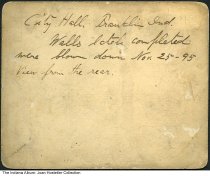 City Hall, Franklin Ind.
Walls lately completed
were blown down Nov. 25-95
View from the rear.
The Indiana Album: Joan Hostetler Collection